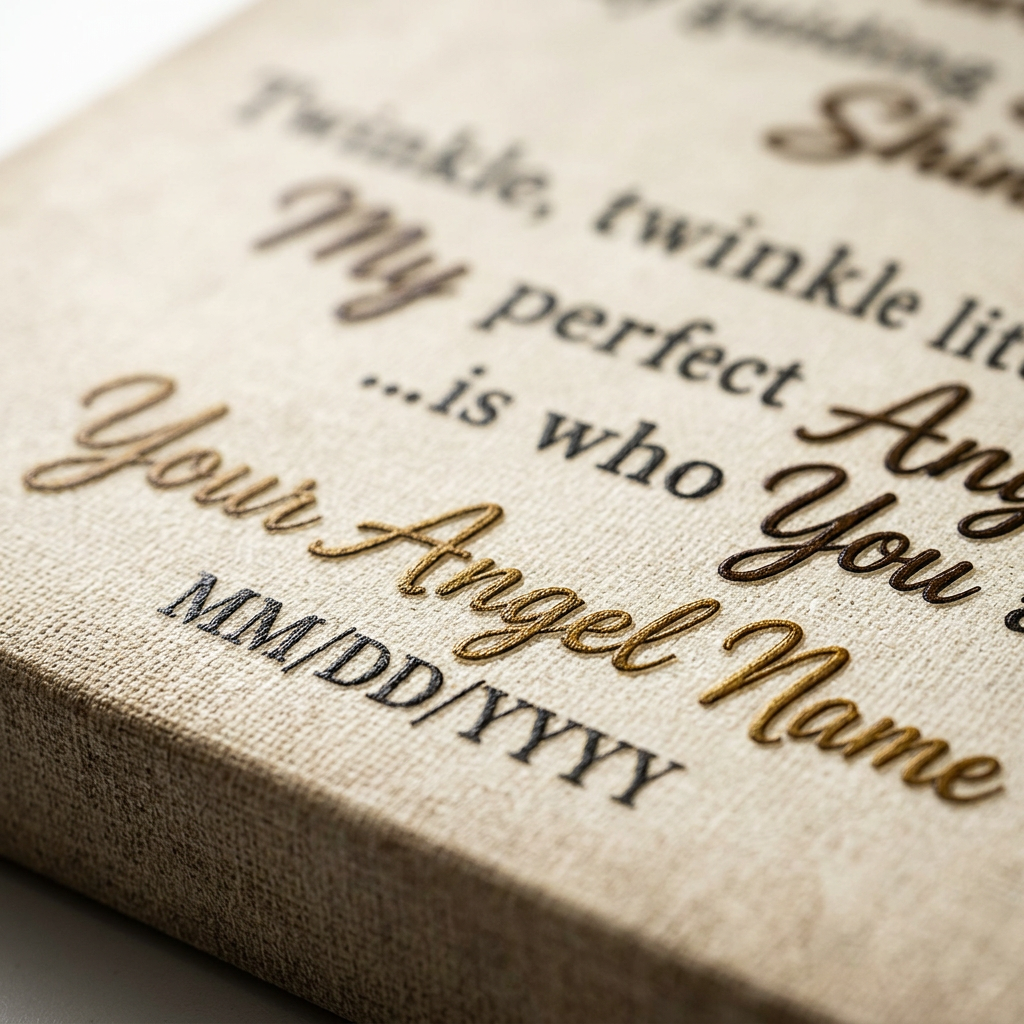 guiding
Shin
Twinkle, twinkle litt
My perfect Ang
...is who You
Your Angel Name
MM/DD/YYYY